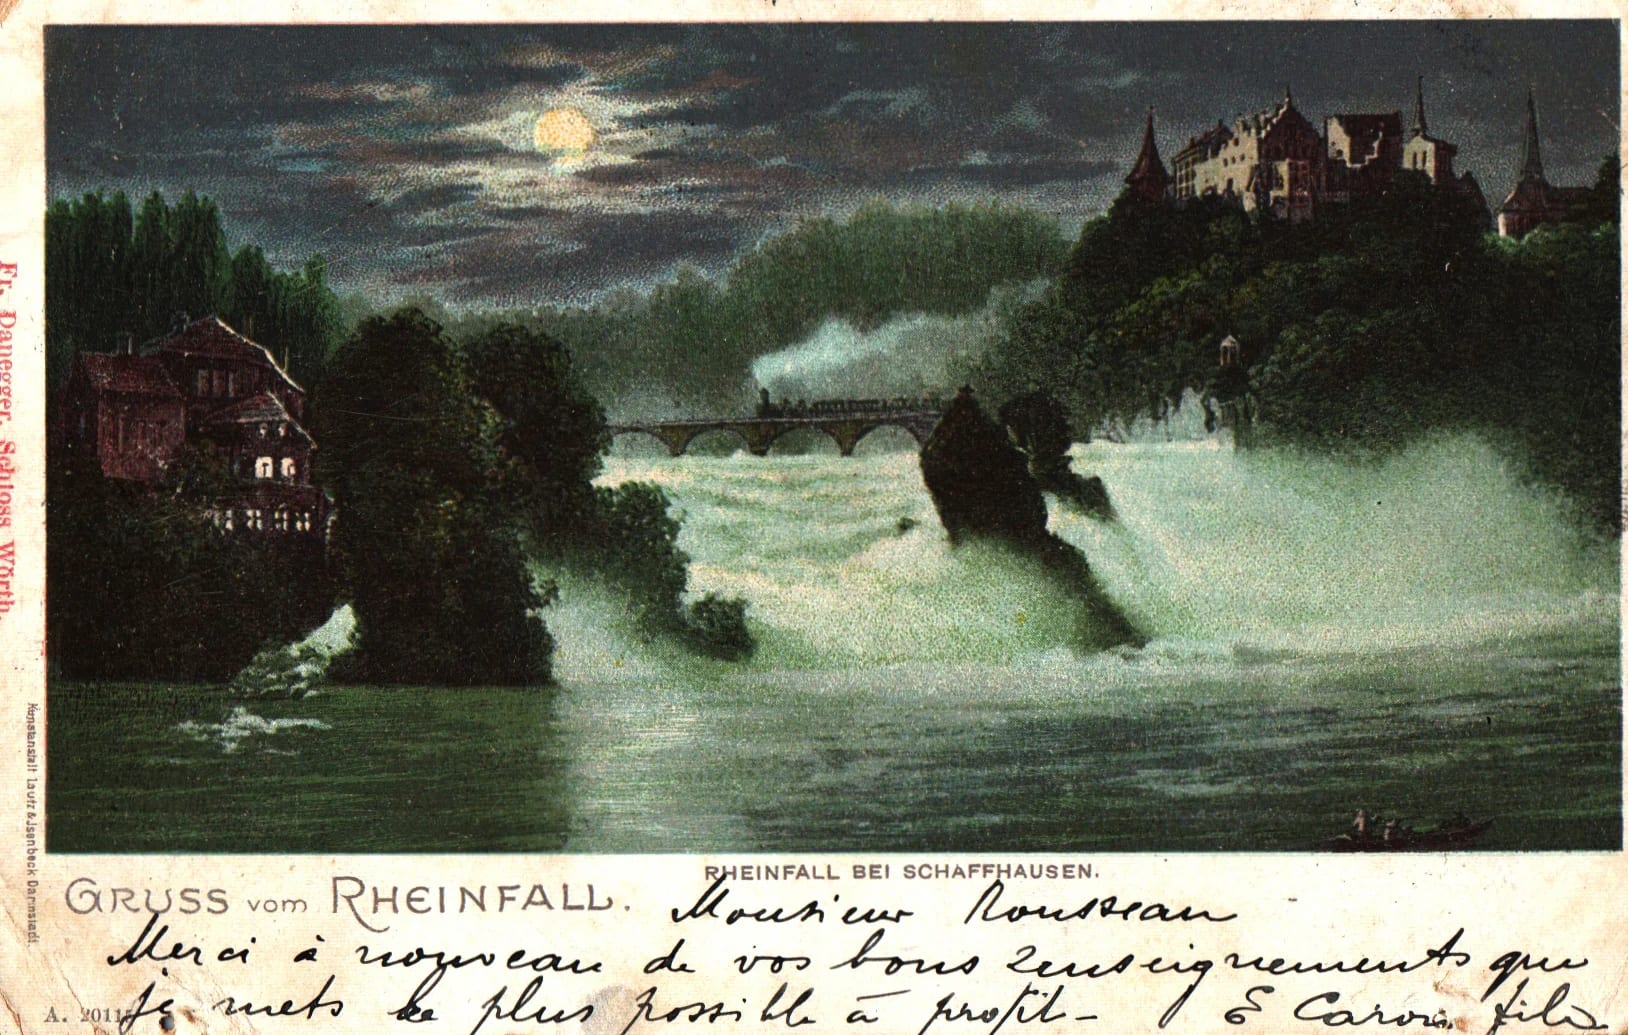 Fr. Danegger, Schloss Wörth.
Kunstanstalt Lautz & Jsenbeck Darmstadt.
RHEINFALL BEI SCHAFFHAUSEN.
GRUSS vom RHEINFALL.
Monsieur Rousseau
Merci à nouveau de vos bons renseignements que
je mets le plus possible à profit -
E fils
A. 2011